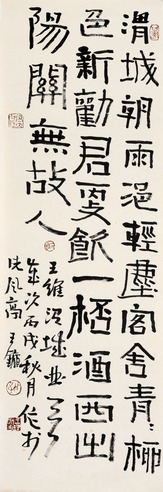 渭城朝雨浥輕塵客舍青〻柳
色新勸君更飲一桮酒西出
陽關無故人
王維渭城曲
歲次丙戌秋月佐書
王鏞